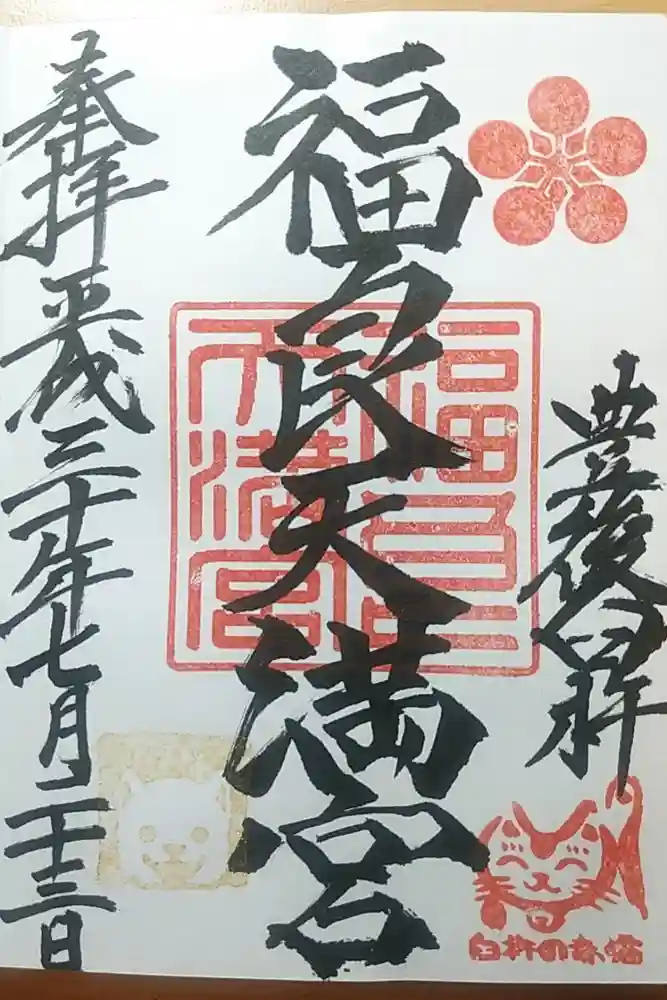 豊後臼杵
福良天満宮
奉拝 平成三十年七月二十三日
福良
天満宮
臼杵の赤猫